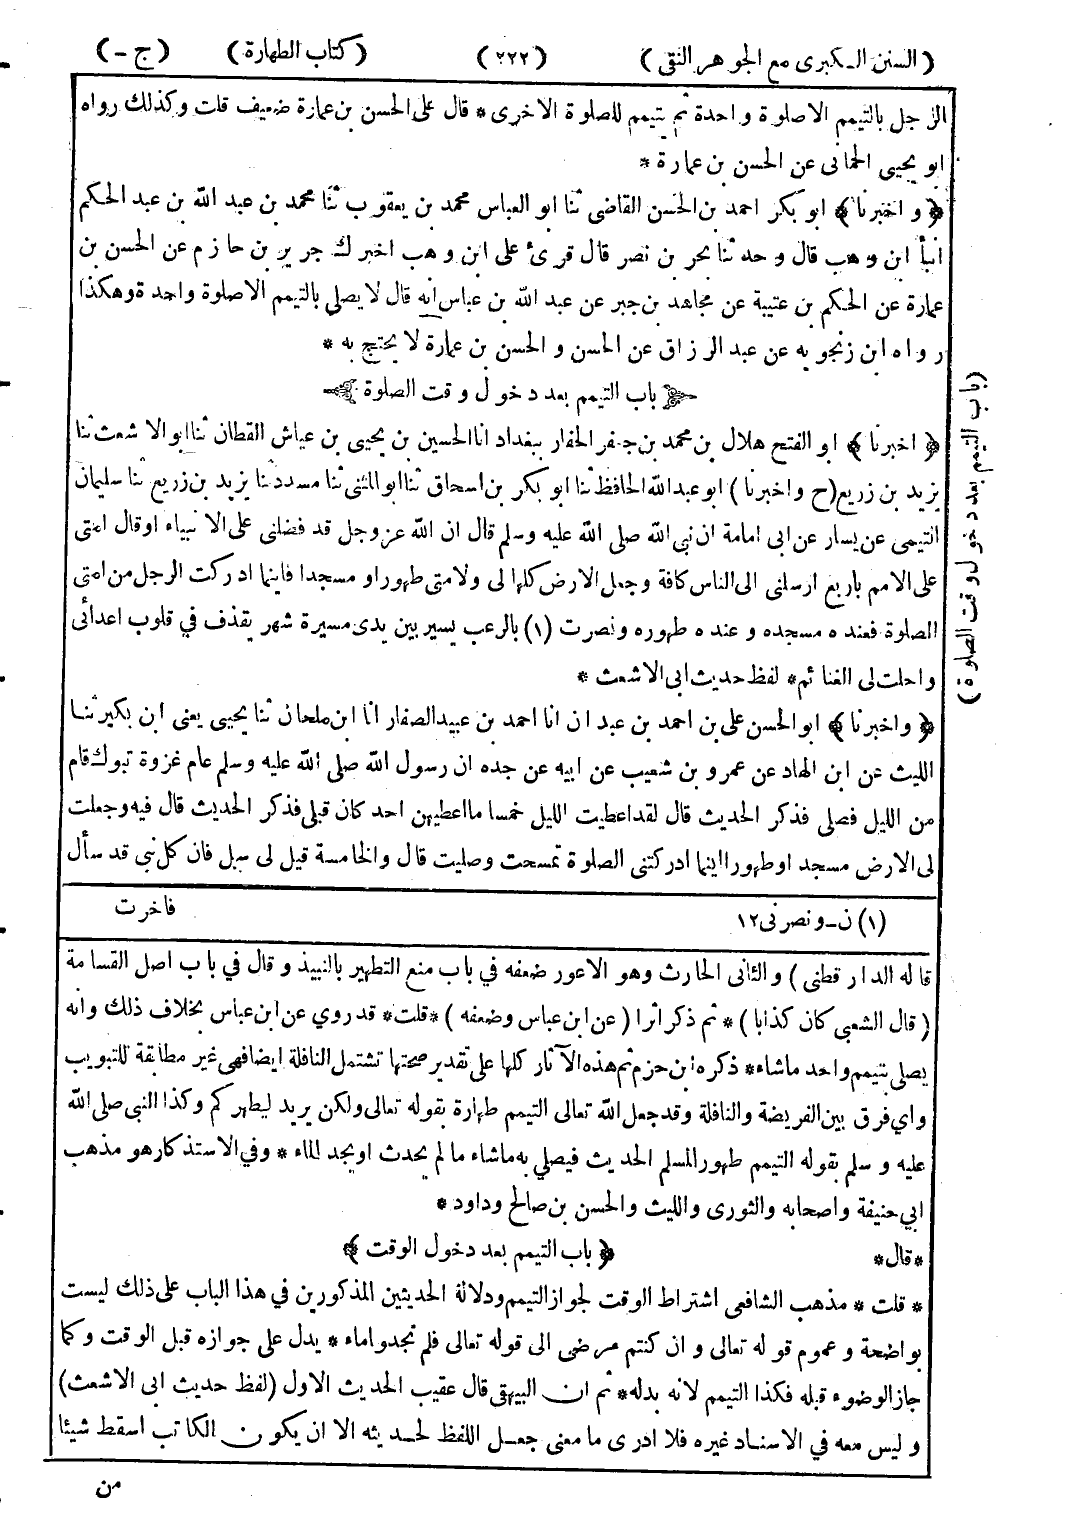 (السنن الكبرى مع الجوهر النقى) (٢٢٢) (كتاب الطهارة) (ج-)
الرجل بالتيمم الاصلوة واحدة ثم يتيمم للصلوة الاخرى * قال على الحسن بن عمارة ضعيف قلت وكذلك رواه
ابو يحيى الحمانى عن الحسن بن عمارة *
﴿واخبرنا﴾ ابو بكر احمد بن الحسن القاضى ثنا ابو العباس محمد بن يعقوب ثنا محمد بن عبد الله بن عبد الحكم
انبأ ابن وهب قال وحدثنا بحر بن نصر قال قرئ على ابن وهب اخبرك جرير بن حازم عن الحسن بن
عمارة عن الحكم بن عتيبة عن مجاهد بن جبر عن عبد الله بن عباس انه قال لا يصلى بالتيمم الاصلوة واحدة وهكذا
رواه ابن زنجويه عن عبد الرزاق عن الحسن و الحسن بن عمارة لا يحتج به *
باب التيمم بعد دخول وقت الصلوة
﴿اخبرنا﴾ ابو الفتح هلال بن محمد بن جعفر الحفار ببغداد انا الحسين بن يحيى بن عياش القطان ثنا ابو الاشعث ثنا
يزيد بن زريع (ح واخبرنا) ابو عبدالله الحافظ ثنا ابو بكر بن اسحاق ثنا ابو المثنى ثنا مسدد ثنا يزيد بن زريع ثنا سليمان
التيمى عن يسار عن ابى امامة ان نبى الله صلى الله عليه وسلم قال ان الله عز وجل قد فضلنى على الانبياء او قال امتى
على الامم باربع ارسلنى الى الناس كافة وجعل الارض كلها لى ولامتى طهورا و مسجدا فاينما ادركت الرجل من امتى
الصلوة فعنده مسجده و عنده طهوره ونصرت (١) بالرعب يسير بين يدى مسيرة شهر يقذف في قلوب اعدائى
واحلت لى الغنائم * لفظ حديث ابى الاشعث *
﴿واخبرنا﴾ ابو الحسن على بن احمد بن عبدان انا احمد بن عبيد الصفار انا ابن ملحان ثنا يحيى يعنى ابن بكير ثنا
الليث عن ابن الهاد عن عمرو بن شعيب عن ابيه عن جده ان رسول الله صلى الله عليه وسلم عام غزوة تبوك قام
من الليل فصلى فذكر الحديث قال لقد اعطيت الليل خمسا ما اعطيهن احد كان قبلى فذكر الحديث قال فيه وجعلت
لى الارض مسجد اوطهورا اينما ادركتنى الصلوة تمسحت وصليت قال والخامسة قيل لى سل فان كل نبى قد سأل
فاخرت
(باب التيمم بعد دخول وقت الصلوة)
(١) ن - ونصرنى ١٢
قاله الدار قطنى) و الثانى الحارث وهو الاعور ضعفه في باب منع التطهير بالنبيذ و قال في باب اصل القسامة
(قال الشعبى كان كذابا) * ثم ذكر اثرا (عن ابن عباس وضعفه) * قلت * قد روي عن ابن عباس بخلاف ذلك وانه
يصلى بتيمم واحد ماشاء * ذكره ابن حزم ثم هذه الآثار كلها على تقدير صحتها تشتمل النافلة ايضا فهى غير مطابقة للتبويب
واي فرق بين الفريضة والنافلة وقد جعل الله تعالى التيمم طهارة بقوله تعالى ولكن يريد ليطهركم وكذا النبى صلى الله
عليه و سلم بقوله التيمم طهور المسلم الحديث فيصلي به ماشاء ما لم يحدث او يجد الماء * وفي الاستذكار هو مذهب
ابي حنيفة واصحابه والثورى والليث والحسن بن صالح وداود *
* قال * ﴿باب التيمم بعد دخول الوقت﴾
* قلت * مذهب الشافعى اشتراط الوقت لجواز التيمم ودلالة الحديثين المذكورين في هذا الباب على ذلك ليست
بواضحة و عموم قوله تعالى و ان كنتم مرضى الى قوله تعالى فلم تجدوا ماء * يدل على جوازه قبل الوقت وكما
جاز الوضوء قبله فكذا التيمم لانه بدله * ثم ان البيهقى قال عقيب الحديث الاول (لفظ حديث ابى الاشعث)
و ليس معه في الاسناد غيره فلا ادرى ما معنى جعل اللفظ لحديثه الا ان يكون الكاتب اسقط شيئا
من